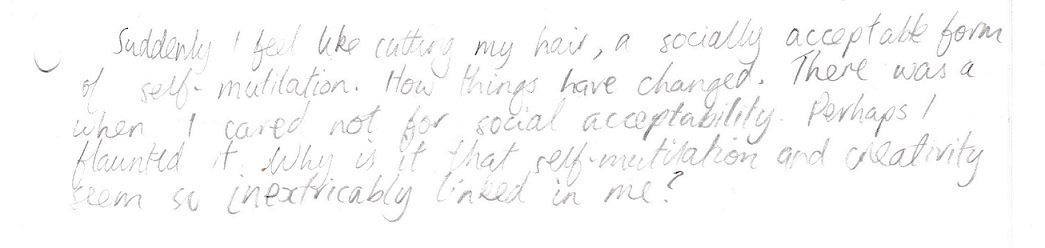 Suddenly I feel like cutting my hair, a socially acceptable form
of self-mutilation. How things have changed. There was a
when I cared not for social acceptability. Perhaps I
flaunted it. Why is it that self-mutilation and creativity
seem so inextricably linked in me?